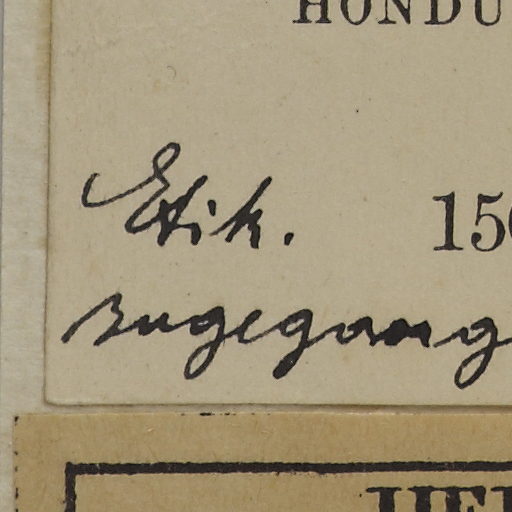 HONDU
Etik. 150
zugegang
HER